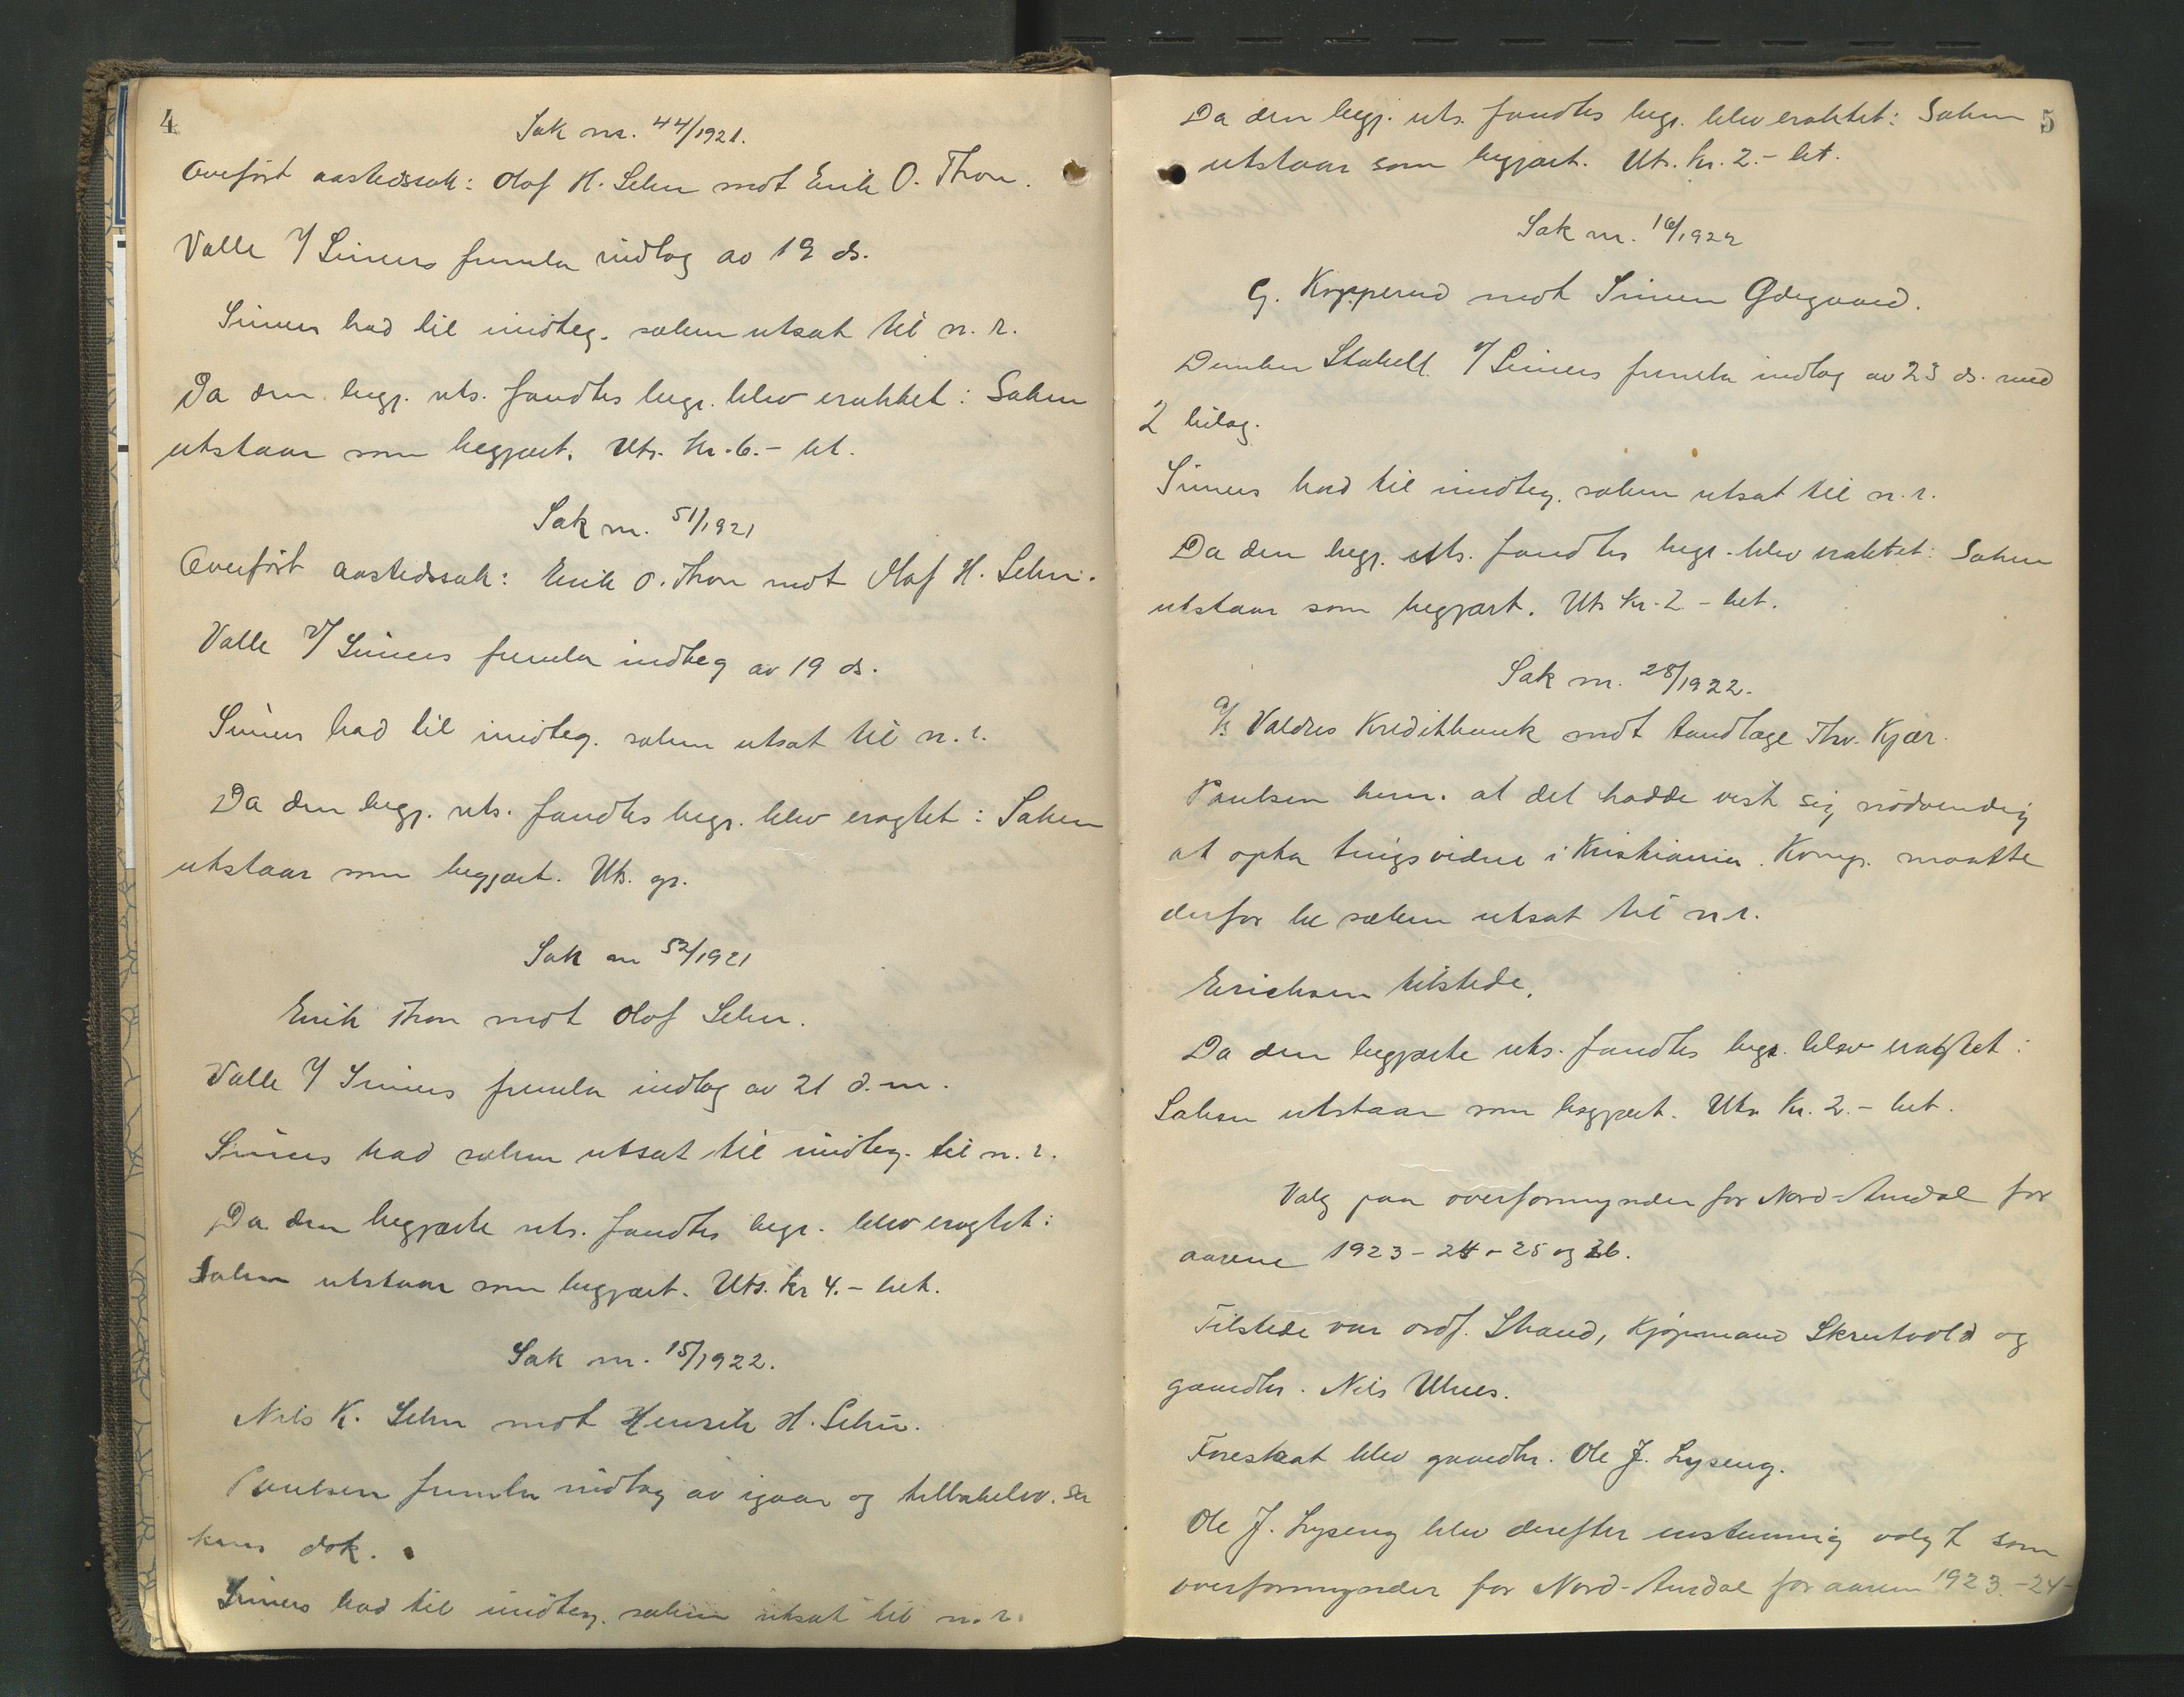 4
Sak nr. 44/1921.
Overført aastedssak: Olof H. Sehn mot Erik O. Thon.
Valle v/ Simers fremla indlæg av 19 ds.
Simers bad til imøteg. saken utsat til n. r.
Da den begj. uts. fandtes begr. blev eraktet: Saken
utstaar som begjært. Uts. kr. 6.- bet.
Sak nr. 51/1921
Overført aastedssak: Erik O. Thon mot Olof H. Sehn.
Valle v/ Simers fremla indlæg av 19 ds.
Simers bad til imøteg. saken utsat til n. r.
Da den begj. uts. fandtes begr. blev eragtet: Saken
utstaar som begjært. Uts. gr.
Sak nr 52/1921
Erik Thon mot Olof Sehn.
Valle v/ Simers fremla indlæg av 21 d.m.
Simers bad saken utsat til imøteg. til n. r.
Da den begjærte uts. fandtes begr. blev eragtet:
Saken utstaar som begjært. Uts. kr 4.- bet.
Sak nr. 15/1922.
Nils K. Sehn mot Henrik H. Sehn.
Paulsen fremla indlæg av igaar og tilbakelev. de
kans dok.
Simers bad til imøteg. saken utsat til n. r.
5
Da den begj. uts. fandtes begr. blev eraktet: Saken
utstaar som begjært. Uts. kr. 2.- bet.
Sak nr. 16/1922
G. Kopperud mot Simen Ødegaard.
Stabell v/ Simers fremla indlæg av 23 ds. med
2 bilag.
Simers bad til imøteg. saken utsat til n. r.
Da den begj. uts. fandtes begr. blev eraktet: Saken
utstaar som begjært. Uts kr. 2 - bet.
Sak nr. 28/1922.
A/S Valdres Kreditbank mot tandlæge Thv. Kjær.
Paulsen bem. at det hadde vist sig nødvendig
at opta tingsvidne i Kristiania. Komp. maatte
derfor be saken utsat til n. r.
Erichsen tilstede.
Da den begjærte uts. fandtes begr. blev eragtet:
Saken utstaar som begjært. Uts. kr. 2.- bet.
Valg paa overformynder for Nord-Aurdal for
aarene 1923 - 24 - 25 og 26.
Tilstede var ordf. Strand, kjøpmand Skrutvold og
gaardbr. Nils Ulnes.
Foreslaat blev gaardbr. Ole J. Lyseng.
Ole J. Lyseng blev derefter enstemmig valgt som
overformynder for Nord-Aurdal for aarene 1923 - 24 -